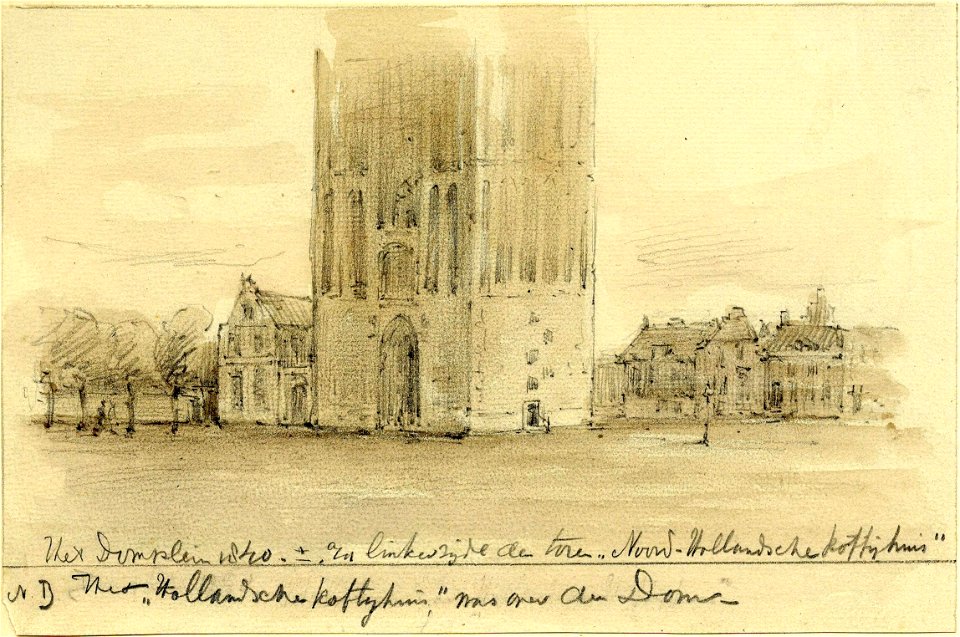 Het Domplein 1840. ± linkerzijde den toren „Noord-Hollandsche koffijhuis"
N.B Het „Hollandsche koffyhuis," was over den Dom